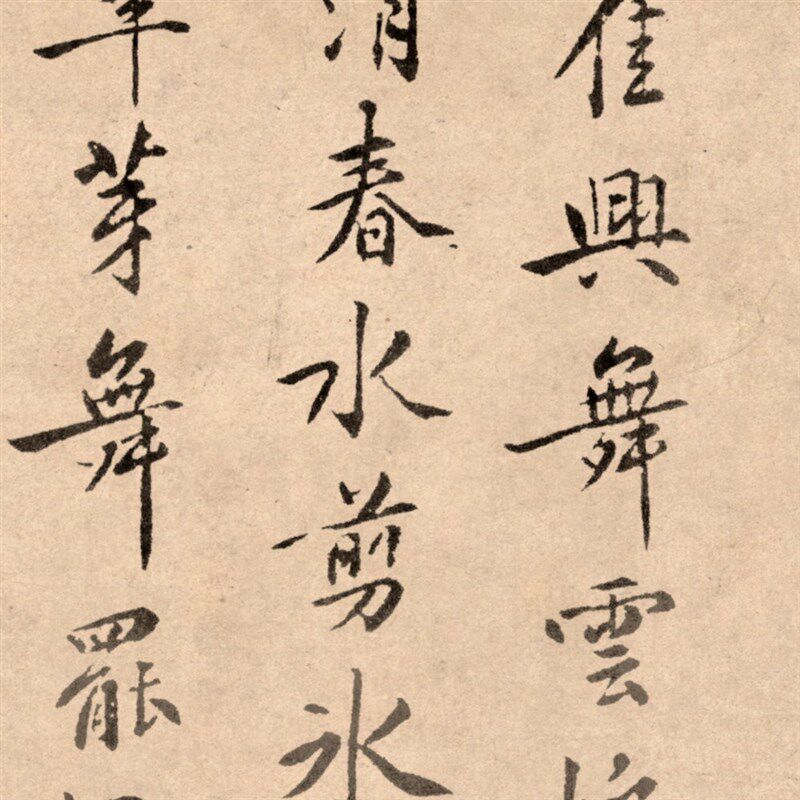 佳興舞雲
春水剪氷
芽舞罷